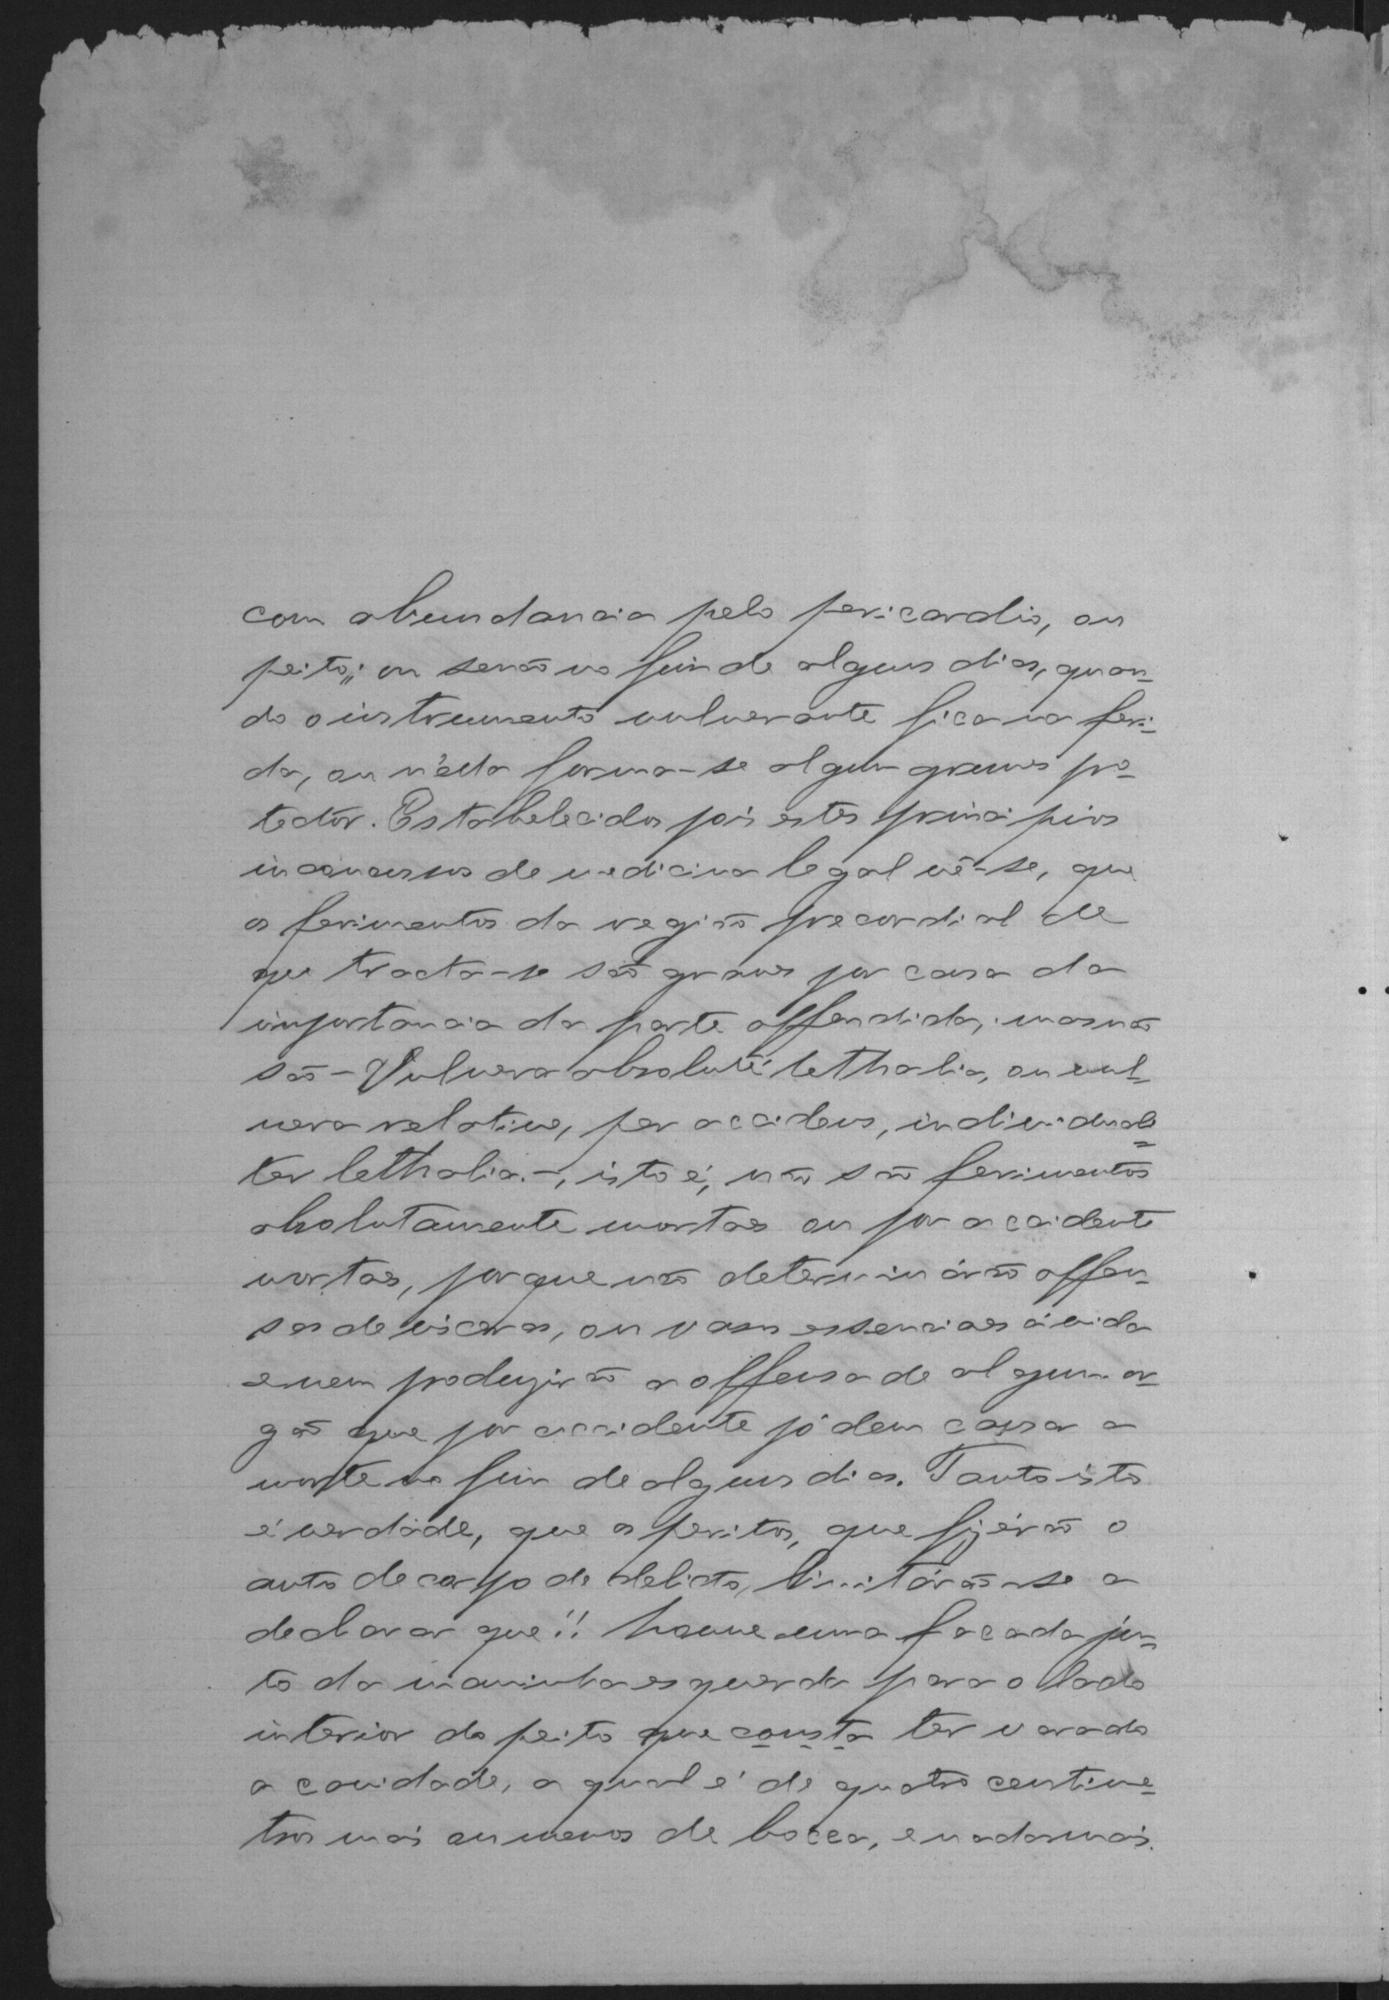 com abundancia pelo pericardio, ou
peito,, ou senão no fim de alguns dias, quan-
do o instrumento vulnerante fica na feri-
da, ou n'ella forma-se algum grumo pro-
tector. Estabelecidos pois estes principios
inconcussos de medicina legal vê-se, que
os ferimentos da região precordial de
que tracta-se são graves por causa da
importancia da parte offendida, mas não
são - Vulnera absoluté lethalia, ou vul-
nera relative, per accidens, individuali-
ter lethalia. -, isto é, não são ferimentos
absolutamente mortaes ou por accidente
mortaes, porque não determinárão offen-
sas de visceras, ou vasos essenciaes á vida
e nem produzirão a offensa de algum or-
gão que por accidente pódem causar a
morte no fim de alguns dias. Tanto isto
é verdade, que os peritos, que fizérão o
auto de corpo de delicto, limitárão-se a
declarar que!! houve uma facada jun-
to da maminha esquerda para o lado
interior do peito que consta ter varado
a cavidade, a qual é de quatro centime-
tros mais ou menos de bocca, e nada mais.